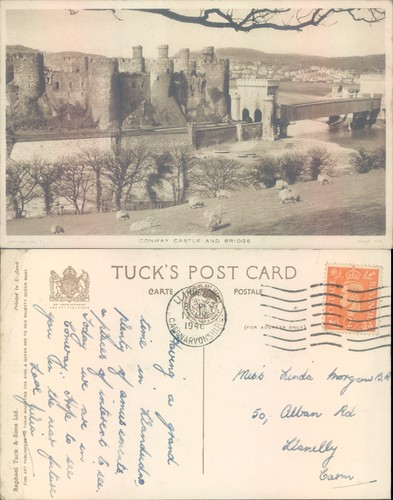 CONWAY CASTLE AND BRIDGE
TUCK'S POST CARD
CARTE
POSTALE
(FOR ADDRESS ONLY)
Printed in England
BY APPOINTMENT
Raphael Tuck & Sons Ltd.
CAERNARVONSHIRE
1946
Having a grand
time in Llandudno
plenty of amusements
& places of interest to see.
Today we are in
Conway. Hope to see
you in the near future
Love Julia
Miss Linda Morgan B.A
50, Alban Rd
Llanelly
Carm